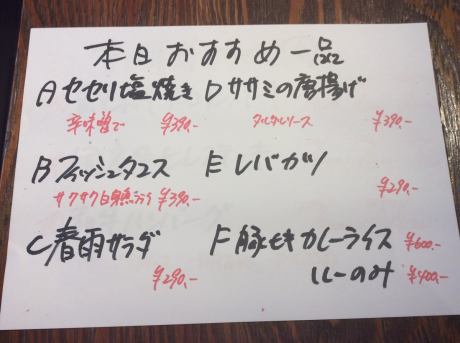 本日おすすめ一品
Aセセリ塩焼き
辛味噌で ¥390.-
Bフィッシュタコス
サクサク白身魚フライ ¥390.-
C春雨サラダ
¥290.-
Dササミの唐揚げ
タルタルソース ¥390.-
Eレバカツ
¥290.-
F豚モモカレーライス ¥600.-
ルーのみ ¥400.-